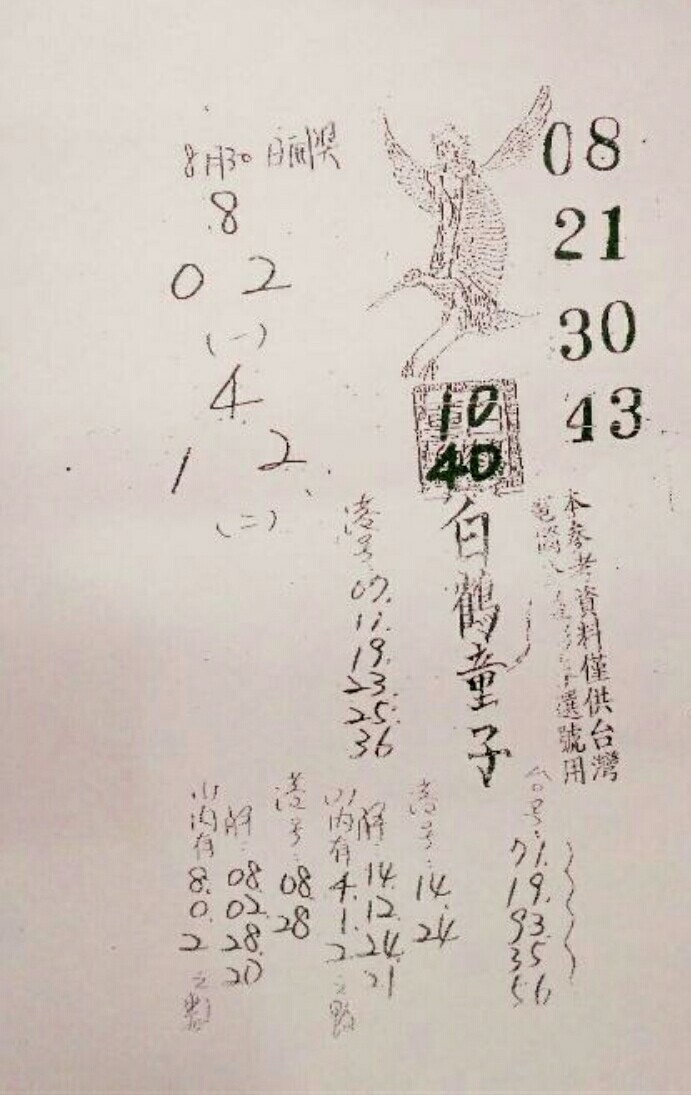 08
21
30
43
10
40
白鶴童子
本參考資料僅供台灣
選號用
8月30日
8
0 2
(一)
4
1 2
(二)
港号:
07.
11.
19.
23.
25.
36
台号:
71.
19.
93.
35
56
港号:
14.
24
解:
14.
12.
24.
21
以内有
4.
1.
2
之數
港号:
08
28
解:
08.
02.
28.
20
以内有
8.
0.
2
之數